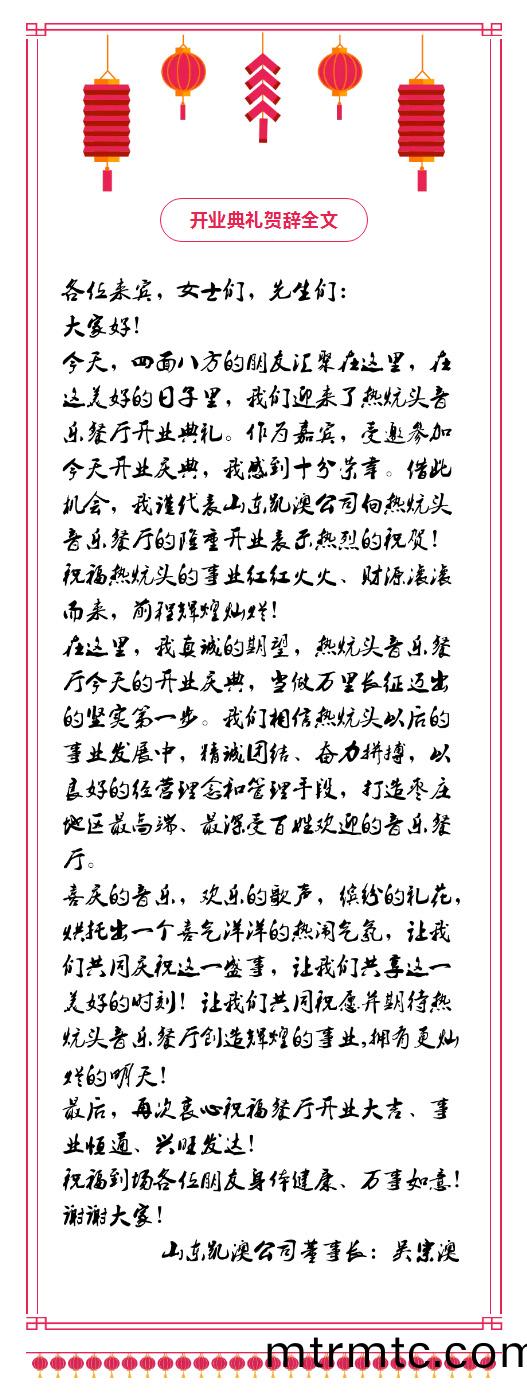 开业典礼贺辞全文
各位来宾，女士们，先生们：
大家好！
今天，四面八方的朋友汇聚在这里，在
这美好的日子里，我们迎来了热炕头音
乐餐厅开业典礼。作为嘉宾，受邀参加
今天开业庆典，我感到十分荣幸。借此
机会，我谨代表山东凯澳公司向热炕头
音乐餐厅的隆重开业表示热烈的祝贺！
祝福热炕头的事业红红火火、财源滚滚
而来，前程辉煌灿烂！
在这里，我真诚的期望，热炕头音乐餐
厅今天的开业庆典，当做万里长征迈出
的坚实第一步。我们相信热炕头以后的
事业发展中，精诚团结、奋力拼搏，以
良好的经营理念和管理手段，打造枣庄
地区最高端、最深受百姓欢迎的音乐餐
厅。
喜庆的音乐，欢乐的歌声，缤纷的礼花，
烘托出一个喜气洋洋的热闹气氛，让我
们共同庆祝这一盛事，让我们共享这一
美好的时刻！让我们共同祝愿并期待热
炕头音乐餐厅创造辉煌的事业,拥有更灿
烂的明天！
最后，再次衷心祝福餐厅开业大吉、事
业恒通、兴旺发达！
祝福到场各位朋友身体健康、万事如意！
谢谢大家！
山东凯澳公司董事长：吴宗澳
mtrmtc.com